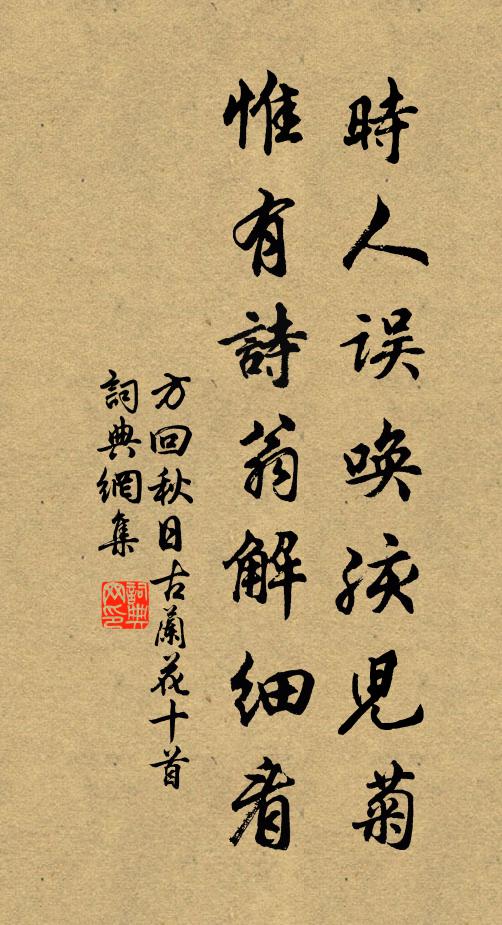 時人误唤孩児菊
惟有詩翁解细看
方回秋日古蘭花十首
詞典網集
詞典网印